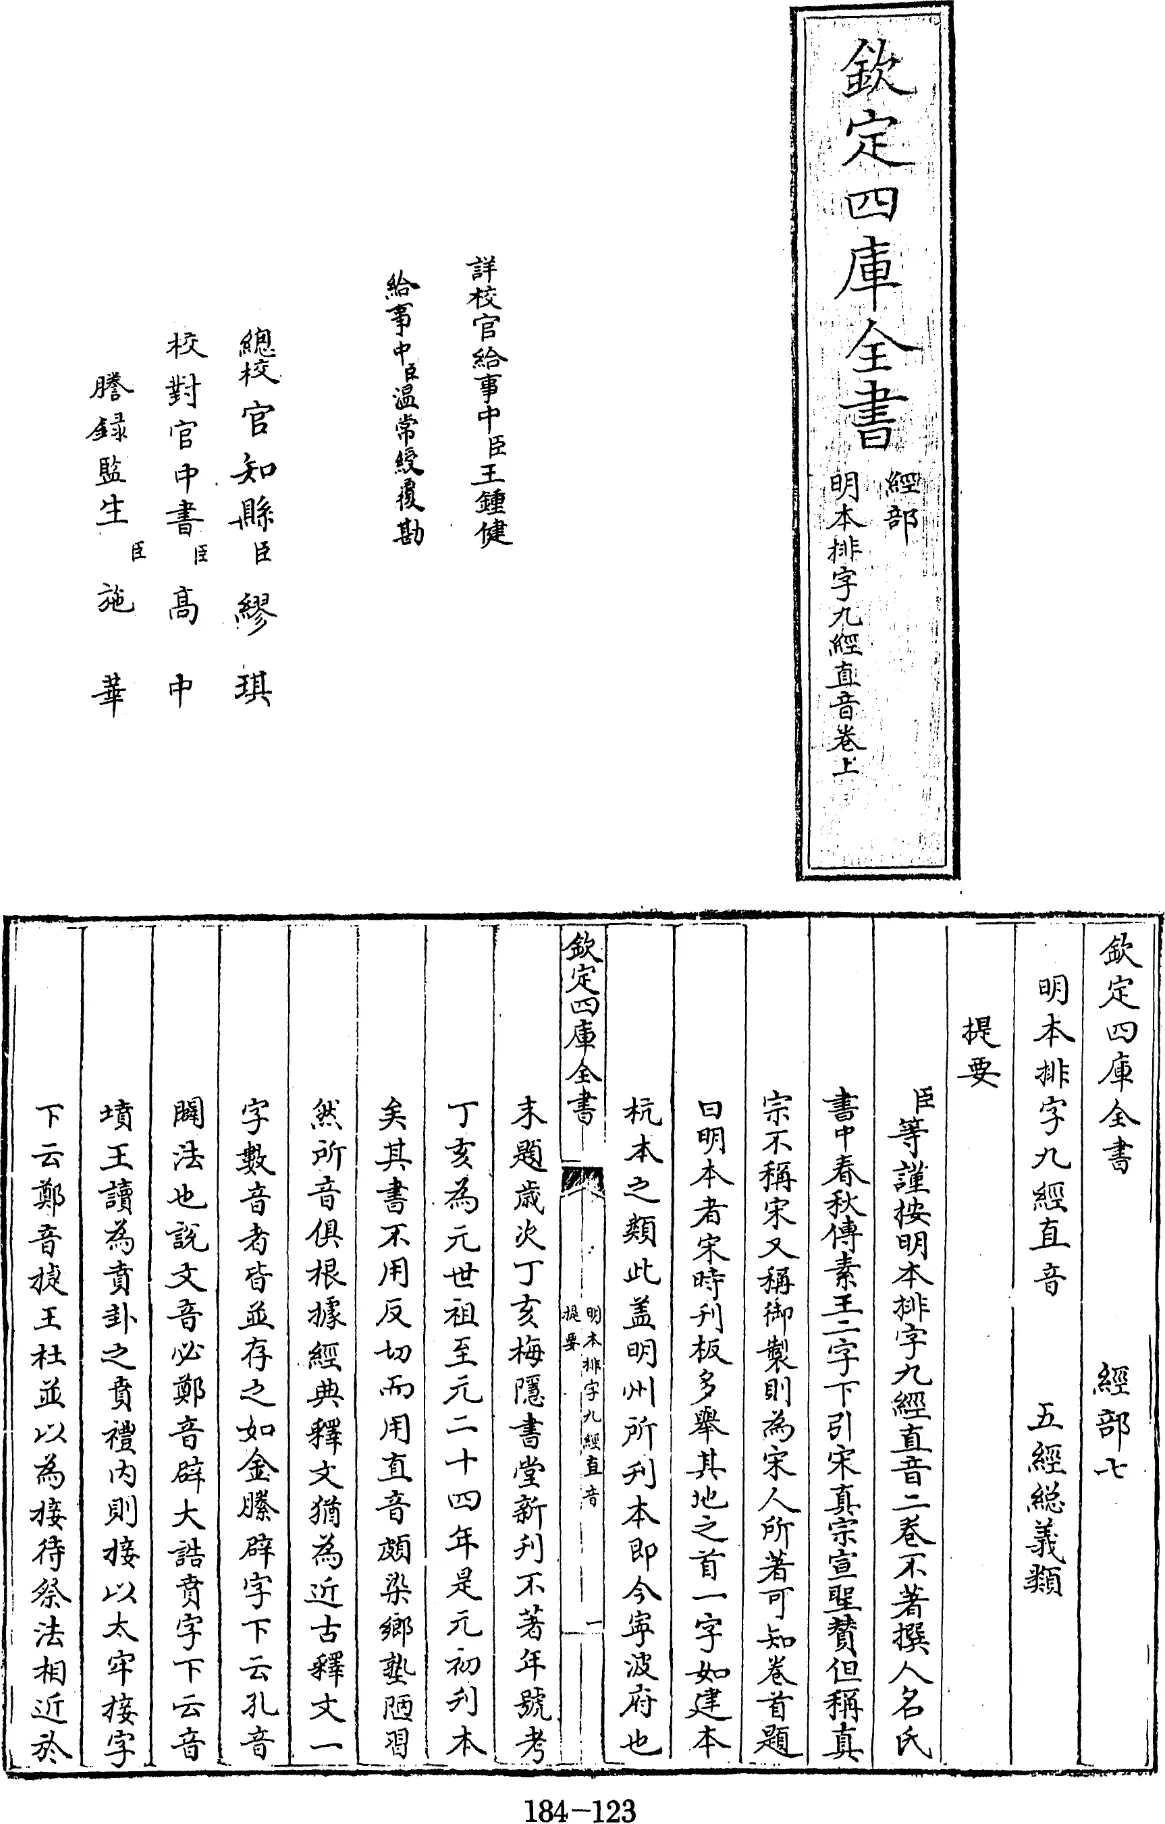 欽定四庫全書
經部
明本排字九經直音卷上
詳校官給事中臣王鍾健
給事中臣溫常綬覆勘
總校官知縣臣繆琪
校對官中書臣高中
謄錄監生臣施華
欽定四庫全書 經部七
明本排字九經直音 五經總義類
提要
臣等謹按明本排字九經直音二卷不著撰人名氏
書中春秋傳素王二字下引宋真宗宣聖贊但稱真
宗不稱宋又稱御製則為宋人所著可知卷首題
曰明本者宋時刋板多舉其地之首一字如建本
杭本之類此蓋明州所刋本即今寧波府也
欽定四庫全書
明本排字九經直音
提要
一
末題歲次丁亥梅隱書堂新刋不著年號考
丁亥為元世祖至元二十四年是元初刋本
矣其書不用反切而用直音頗染鄉塾陋習
然所音俱根據經典釋文猶為近古釋文一
字數音者皆並存之如金縢辟字下云孔音
闢法也說文音必鄭音辟大誥賁字下云音
墳王讀為賁卦之賁禮內則接以太牢接字
下云鄭音捷王杜並以為接待祭法相近於
184-123